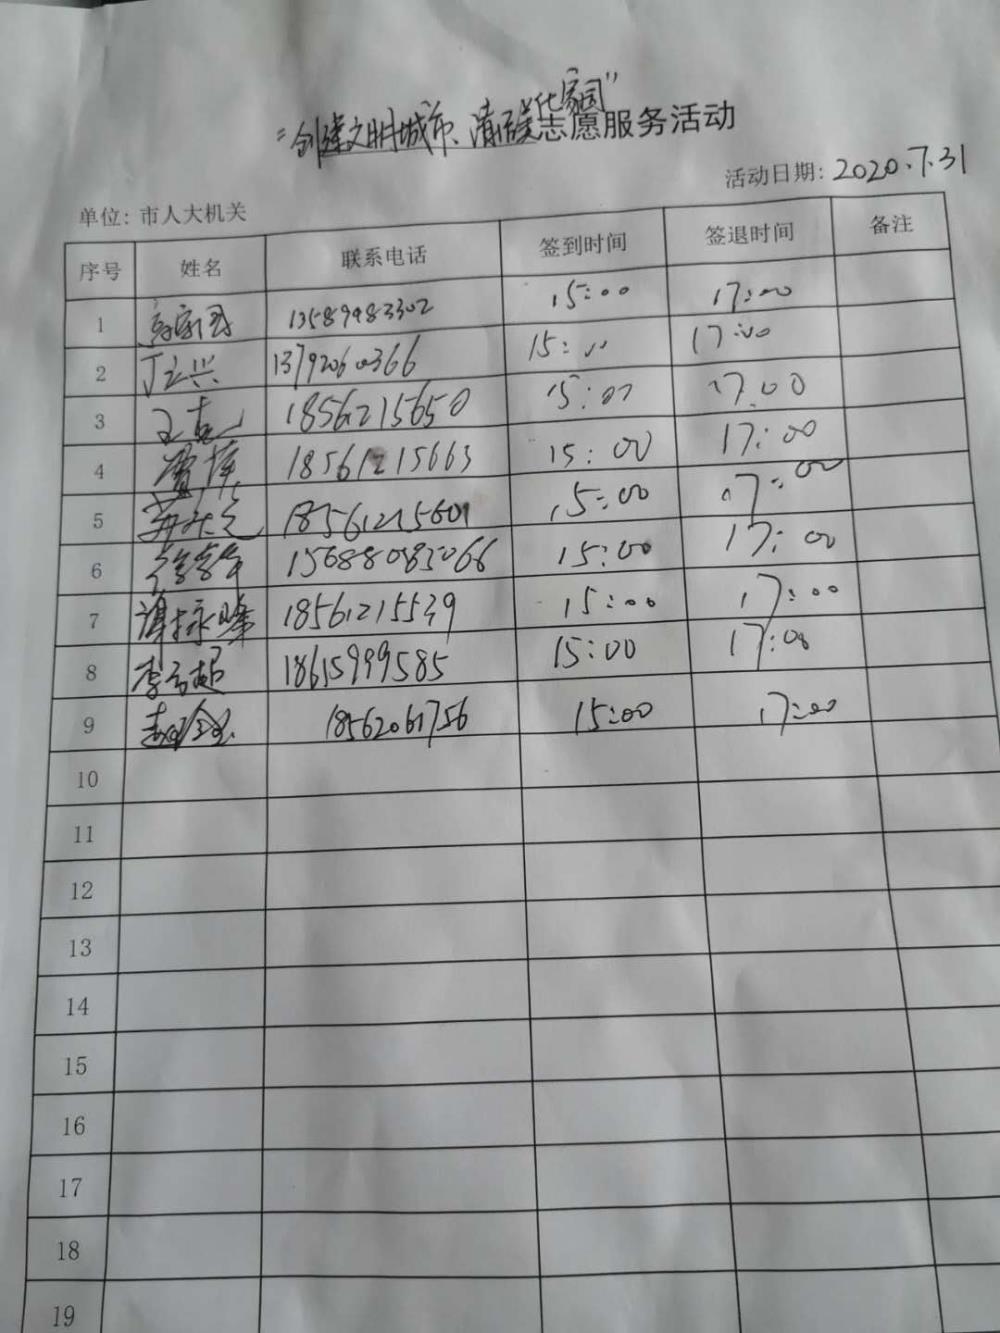 "创建文明城市、清碳化家园"志愿服务活动
活动日期: 2020.7.31
单位: 市人大机关
序号 姓名 联系电话 签到时间 签退时间 备注
1 13589983302 15:00 17:00
2 丁立兴 13792060366 15:00 17:00
3 王克 18561215650 15:00 17:00
4 18561215663 15:00 17:00
5 18561215601 15:00 17:00
6 15:00 17:00
7 谭永峰 18561215539 15:00 17:00
8 李云超 18615999585 15:00 17:00
9 18562061756 15:00 17:00
10
11
12
13
14
15
16
17
18
19